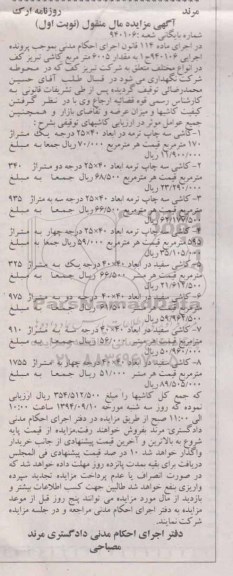 مرند روزنامه ارک
آگهی مزایده مال منقول (نوبت اول)
شماره بایگانی شعبه: ۹۴۰۱۰۶
در اجرای ماده ۱۱۴ قانون اجرای احکام مدنی بموجب پرونده
اجرایی ۹۴۰۱۰۶ج۱ به مقدار ۶۰۰۵ متر مربع کاشی تبریز کف
در انواع مختلف متعلق به شرکت تبریز کف که در محوطه
شرکت نگهداری می شود در قبال طلب آقای حسین
محمدرضائی توقیف گردیده پس از طی تشریفات قانونی به
کارشناس رسمی قوه قضائیه ارجاع وی با در نظر گرفتن
کیفیت کاشیها و میزان عرضه و تقاضای بازار و همچنین
جمیع عوامل موثر در ارزیابی کاشیهای توقیفی بشرح:
۱-کاشی سه چاپ ترمه ابعاد ۴۰×۲۵ درجه یک متراژ
۱۷۰ مترمربع قیمت هر مترمربع ۷۰/۰۰۰ ریال جمعا به مبلغ
ریال
۲- کاشی سه چاپ ترمه ابعاد ۴۰×۲۵ درجه دو متراژ ۳۴۰
مترمربع قیمت هر مترمربع ۶۸/۵۰۰ ریال جمعا به مبلغ
ریال
۳- کاشی سه چاپ ترمه ابعاد ۴۰×۲۵ درجه سه به متراژ ۹۳۵
مترمربع قیمت هر مترمربع ۶۶/۵۰۰ ریال جمعا به مبلغ
ریال
۴-کاشی سه چاپ ترمه ابعاد ۴۰×۲۵ درجه چهار به متراژ
۵۹۵ مترمربع قیمت هر مترمربع ۵۹/۰۰۰ ریال جمعا به مبلغ
۳۵/۱۰۵/۰۰۰ ریال
۵-کاشی سفید در ابعاد ۴۰×۲۰ درجه یک به متراژ ۳۲۵
مترمربع قیمت هر متر ۶۶/۵۰۰ ریال جمعا به مبلغ
۲۱/۶۱۲/۵۰۰ ریال
۶-کاشی سفید در ابعاد ۴۰×۲۰ درجه دو به متراژ ۹۷۵
مترمربع قیمت هر متر ۶۱/۵۰۰ ریال جمعا به مبلغ
۵۹/۹۶۲/۵۰۰ ریال
۷- کاشی سفید در ابعاد ۴۰×۲۰ درجه سه به متراژ ۹۱۰
مترمربع قیمت هر متر ۵۶/۰۰۰ ریال جمعا به مبلغ
۵۰/۹۶۰/۰۰۰ ریال
۸-کاشی سفید در ابعاد ۴۰×۲۰ درجه چهار به متراژ ۱۷۵۵
مترمربع قیمت هر متر ۵۱/۰۰۰ ریال جمعا به مبلغ
۸۹/۵۰۵/۰۰۰ ریال
که جمع کل کاشیها را مبلغ ۳۵۴/۵۱۲/۵۰۰ ریال ارزیابی
نموده که روز سه شنبه مورخه ۱۳۹۴/۰۹/۱۰ ساعت ۱۰:۰۰
الی ۱۱:۰۰ صبح از طریق مزایده در دفتر اجرای احکام مدنی
دادگستری مرند بفروش خواهند رفت.مزایده از قیمت پایه
شروع به بالاترین و آخرین قیمت پیشنهادی از جانب خریدار
واگذار خواهد شد ۱۰ در صد قیمت پیشنهادی فی المجلس
دریافت برای بقیه بمدت پانزده روز مهلت داده خواهد شد که
در صورت انصراف یا عدم پرداخت مزایده تجدید سپرده
واریزی بنفع خواهد شد طالبین جهت کسب اطلاعات بیشتر و
بازدید از مال مورد مزایده می توانند پنج روز قبل از موعد
مزایده به دفتر اجرای احکام مدنی مراجعه و در جلسه مزایده
شرکت نمایند.
دفتر اجرای احکام مدنی دادگستری مرند
مصباحی